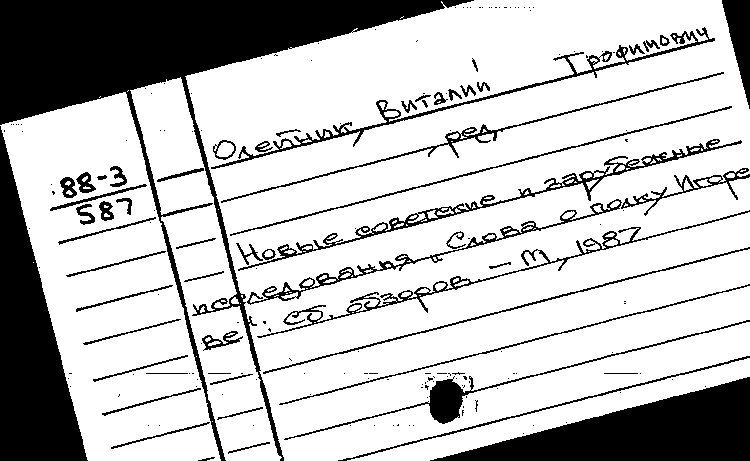 Олейник, Виталий Трофимович
, ред.
88-3
587
Новые советские и зарубежные
исследования „Слова о полку Игоре
ве": Сб. обзоров. – М, 1987